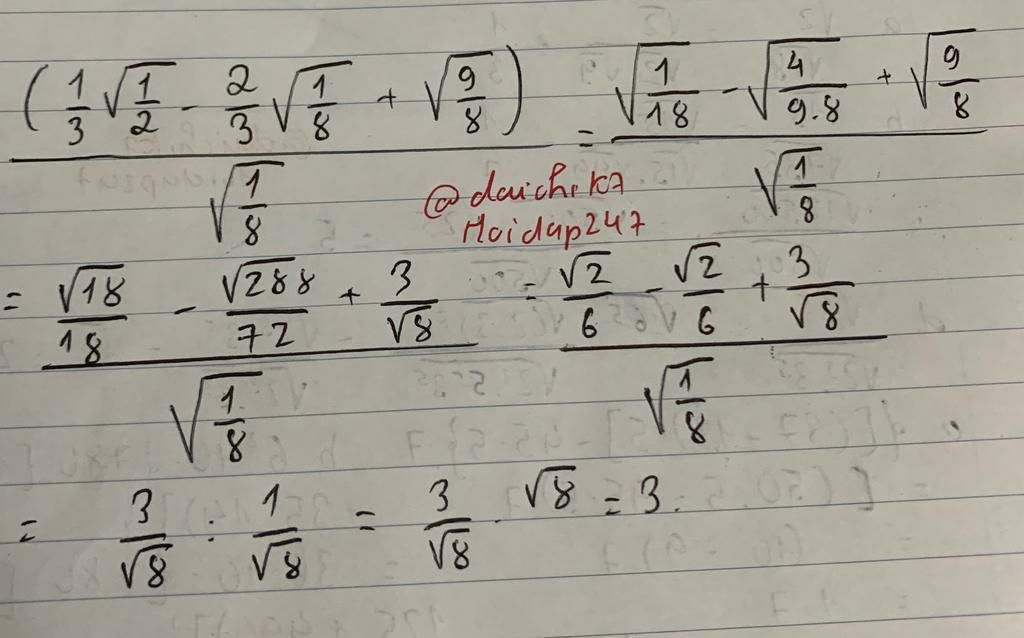 (1/3 √(1/2) - 2/3 √(1/8) + √(9/8)) / √(1/8) = (√(1/18) - √(4/(9.8)) + √(9/8)) / √(1/8)
@daichik7
Hoidap247
= (√18/18 - √288/72 + 3/√8) / √(1/8) = (√2/6 - √2/6 + 3/√8) / √(1/8)
= 3/√8 : 1/√8 = 3/√8 . √8 = 3.